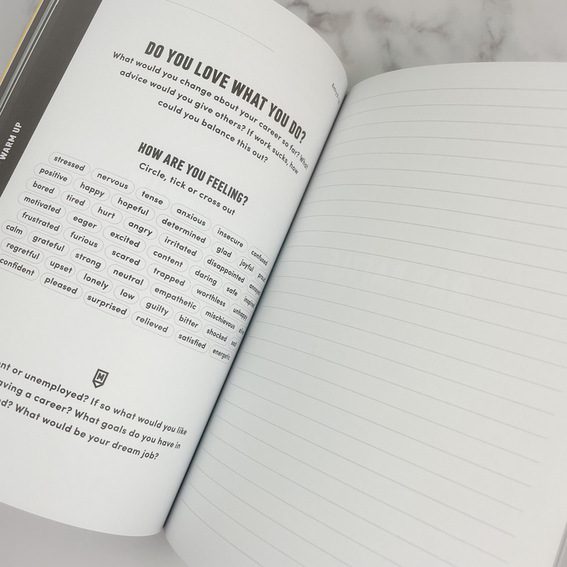 WARM UP
DO YOU LOVE WHAT YOU DO?
What would you change about your career so far? What
advice would you give others? If work sucks, how
could you balance this out?
HOW ARE YOU FEELING?
Circle, tick or cross out
stressed nervous tense anxious insecure confused
positive happy hopeful determined glad joyful proud
bored tired hurt angry irritated disappointed
motivated eager excited content daring safe
frustrated furious scared trapped worthless unhappy
calm grateful strong neutral empathetic mischievous
regretful upset lonely low guilty bitter shocked sad
confident pleased surprised relieved satisfied energetic
M
or unemployed? If so what would you like
a career? What goals do you have in
What would be your dream job?